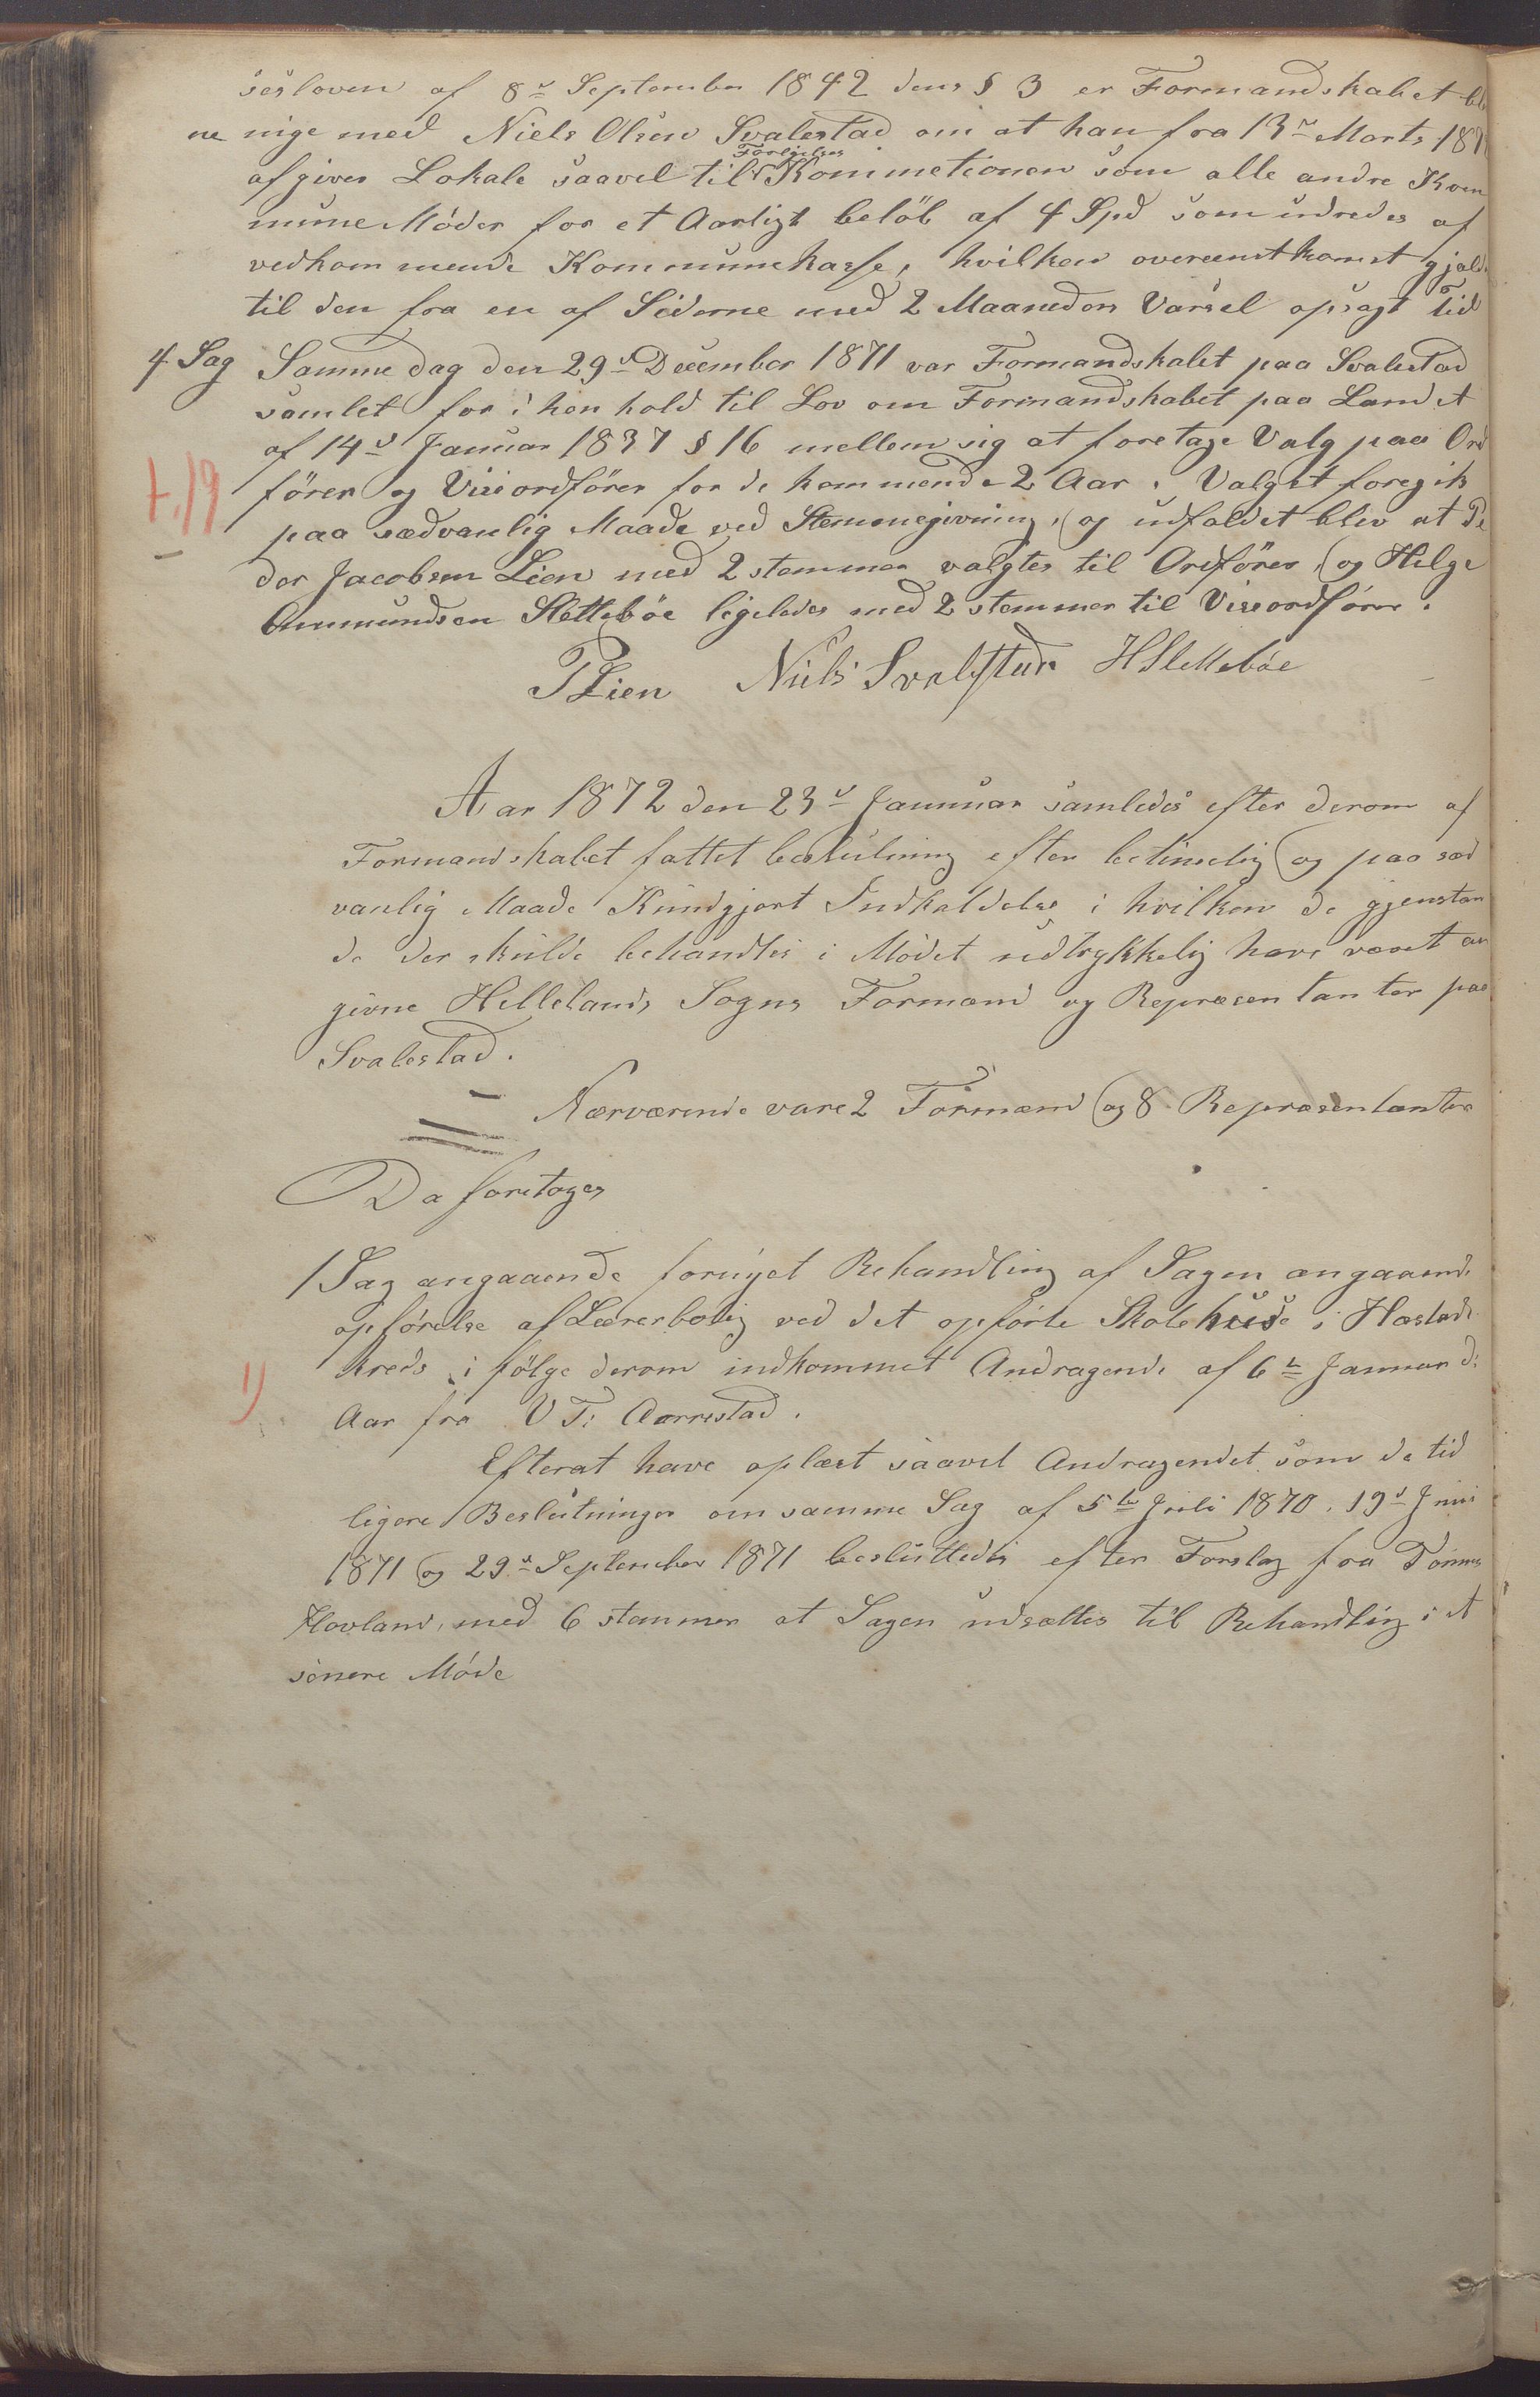 sesloven af 8de September 1842 dens § 3 er Formandskabet ble
ne nige med Niels Olsen Svalestad om at han fra 13de Marts 187
Forligelses
afgiver Lokale saavel til Kommetionen som alle andre Kom
mune Möder for et Aarligt belöb af 4 Spd som udredes af
vedkommende Kommunekasse, hvilken overeenstkomst gjælde
til den fra en af Siderne med 2 Maaneders Varsel opsagt Tid
4 Sag Samme dag den 29de December 1871 var Formandskabet paa Svalestad
samlet for i hen hold til Lov om Formandskabet paa Landet
af 14de Januar 1837 § 16 mellem sig at foretage Valg paa Ord
förer og Viseordförer for de kommende 2 Aar. Valget foregik
paa sædvanlig Maade ved Stemmegivning, og udfaldet blev at Pe
der Jacobsen Lien med 2 stemmer valgtes til Ordförer, og Helge
Ommundsen Slettebøe ligeledes med 2 stemmer til Viseordförer.
PLien Niels Svalestad HSlettebøe
Aar 1872 den 23de Januuar samledes efter derom af
Formandskabet fattet beslutning efter betimelig og paa sæd
vanlig Maade Kundgjort Indkaldelse i hvilken de gjenstan
de der skulde behandles i Mödet udtrykkelig have været an
givne Hellelands Sogns Formænd og Repræsentanter paa
Svalestad.
Nærværende vare 2 Formænd og 8 Repræsentanter
Da foretoges
1 Sag angaaende fornyet Behandling af Sagen angaaende
opförelse af Lærerbolig ved det opförte Skolehuse i Hæstads
1) kreds i fölge derom indkommet Andragende af 6te Januar d:
Aar fra V T: Aarrestad.
Efterat have oplæst saavel Andragendet som de tid
ligere Beslutninger om samme Sag af 5te Juli 1870, 19de Juni
1871 og 29de September 1871 besluttedes efter Forslag fra Tönnes
Hovland, med 6 stemmer at Sagen udsættes til Behandling i et
senere Möde